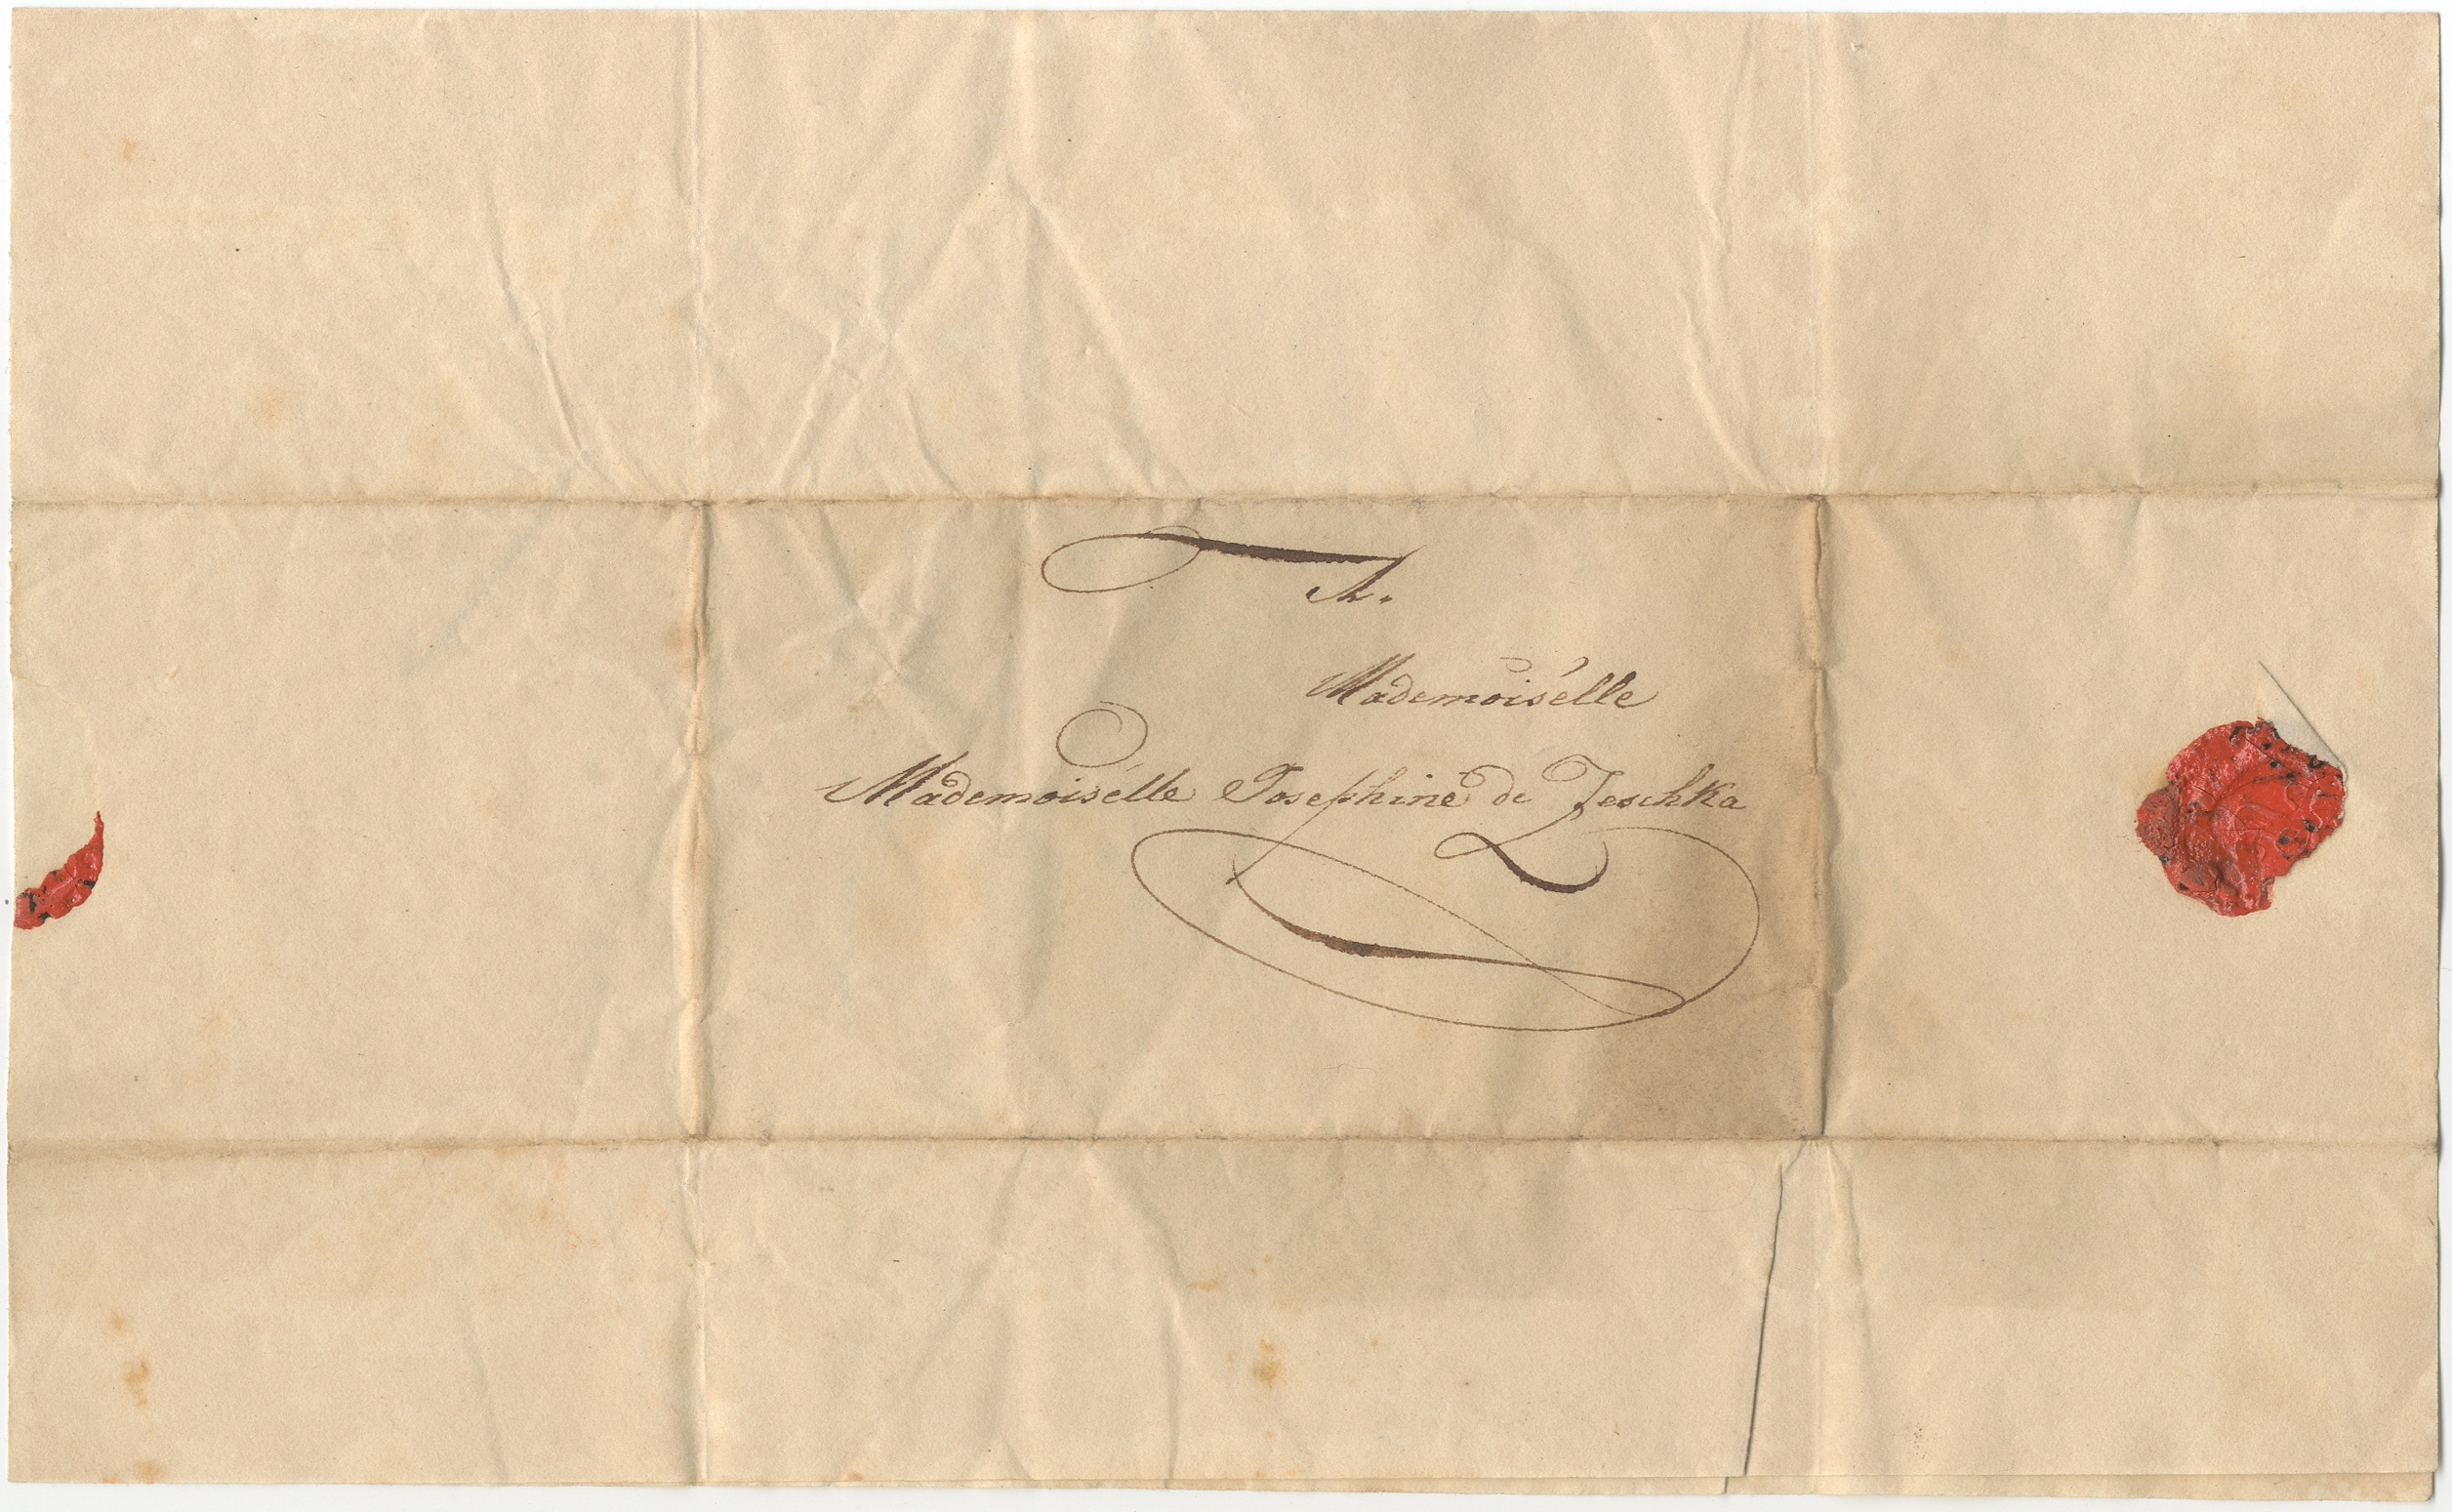 A.
Mademoisélle
Mademoisélle Josephine de Zeschka